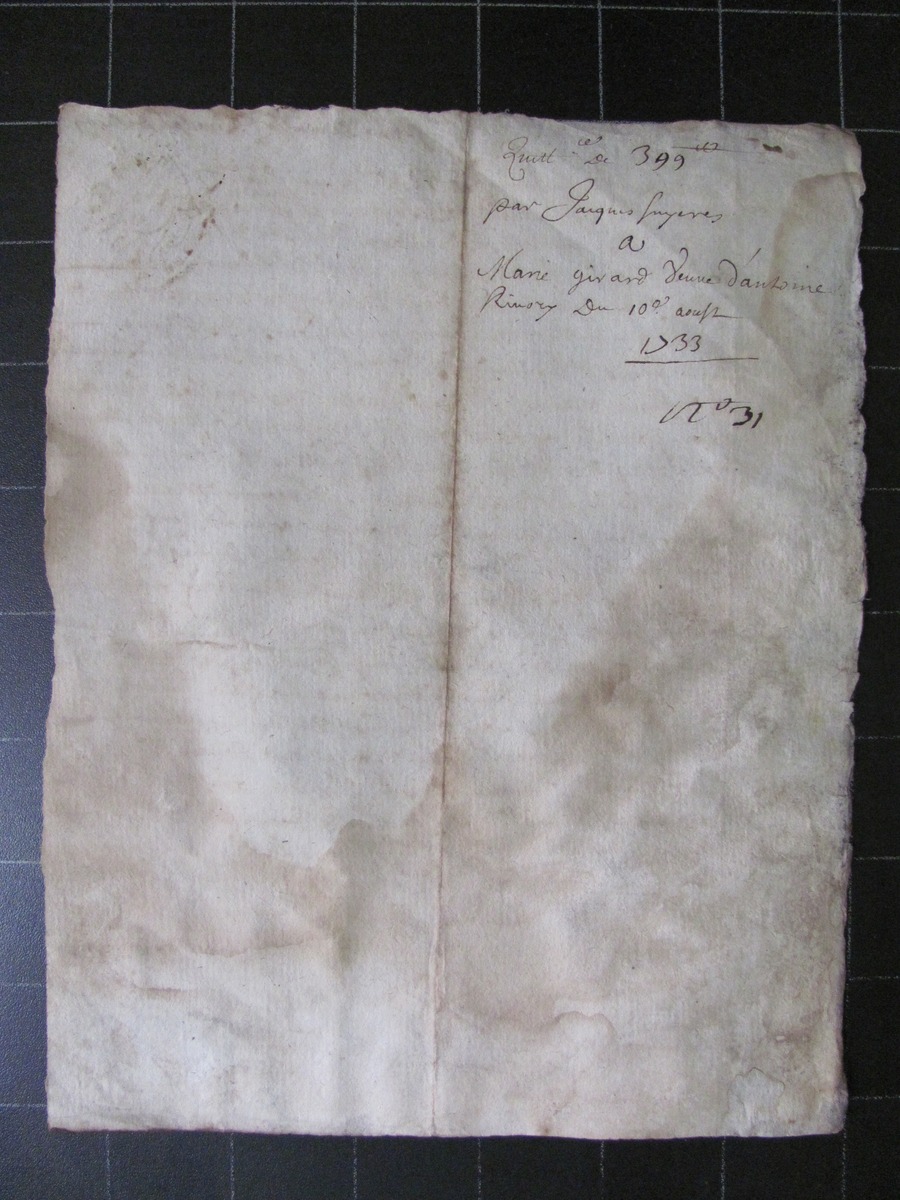 Quitt.ce De 399 lt
par Jacques
a
Marie girard Veuve d'antoine
Rivory Du 10e aoust
1733
No 31